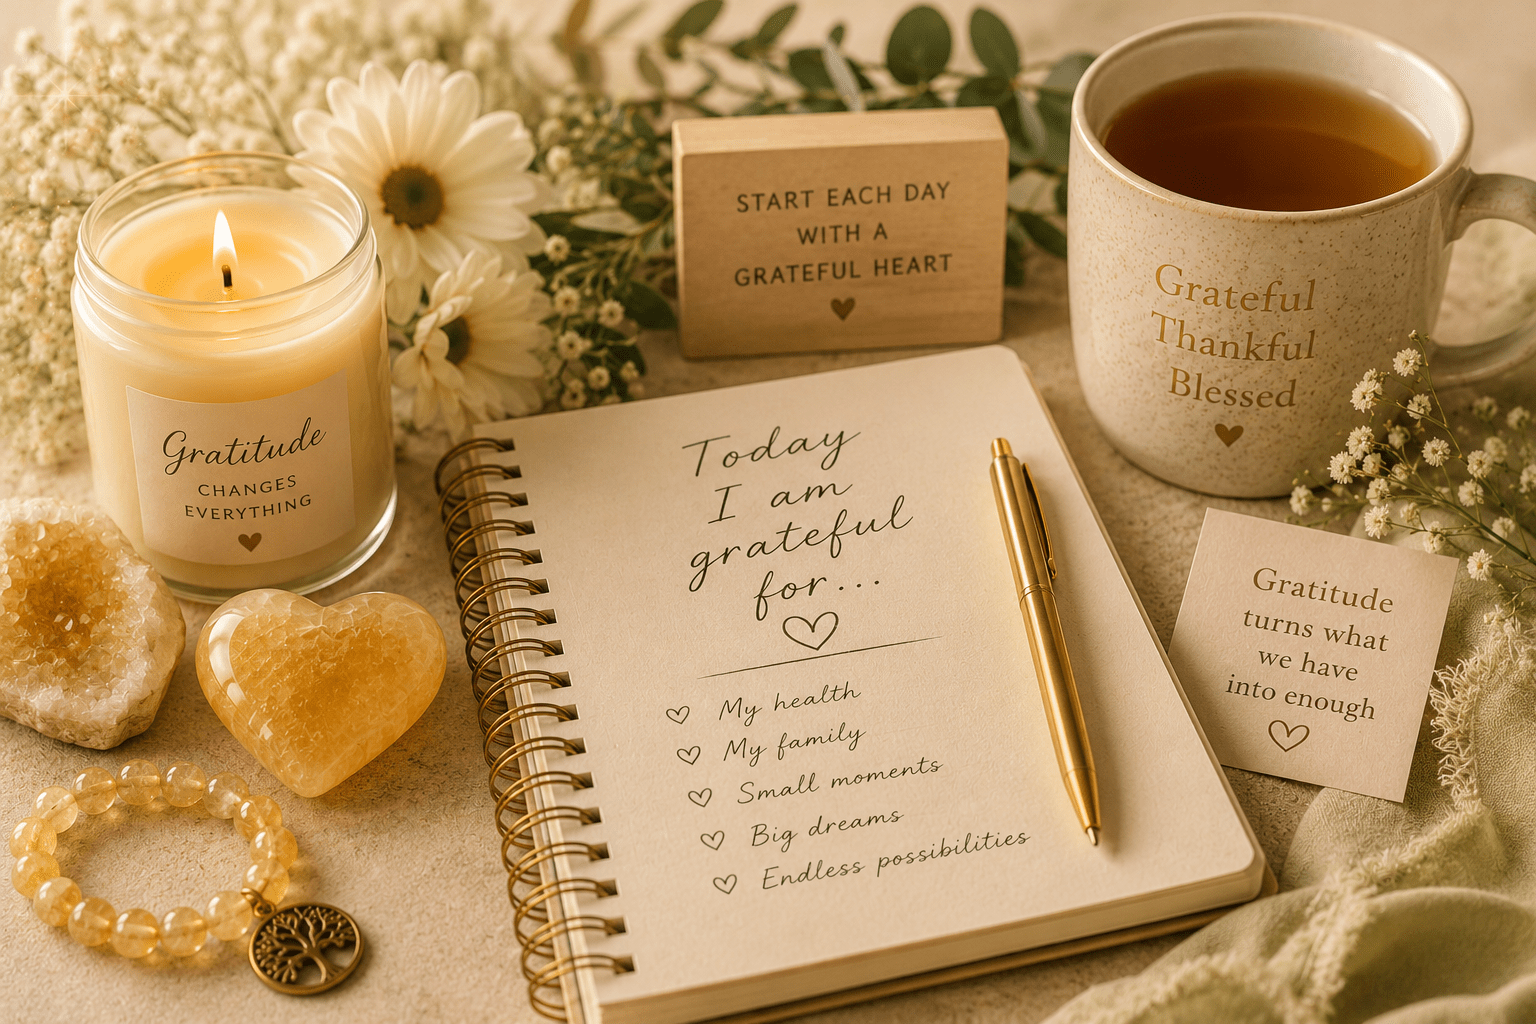 START EACH DAY
WITH A
GRATEFUL HEART
Grateful
Thankful
Blessed
Gratitude
CHANGES
EVERYTHING
Today
I am
grateful
for...
My health
My family
Small moments
Big dreams
Endless possibilities
Gratitude
turns what
we have
into enough